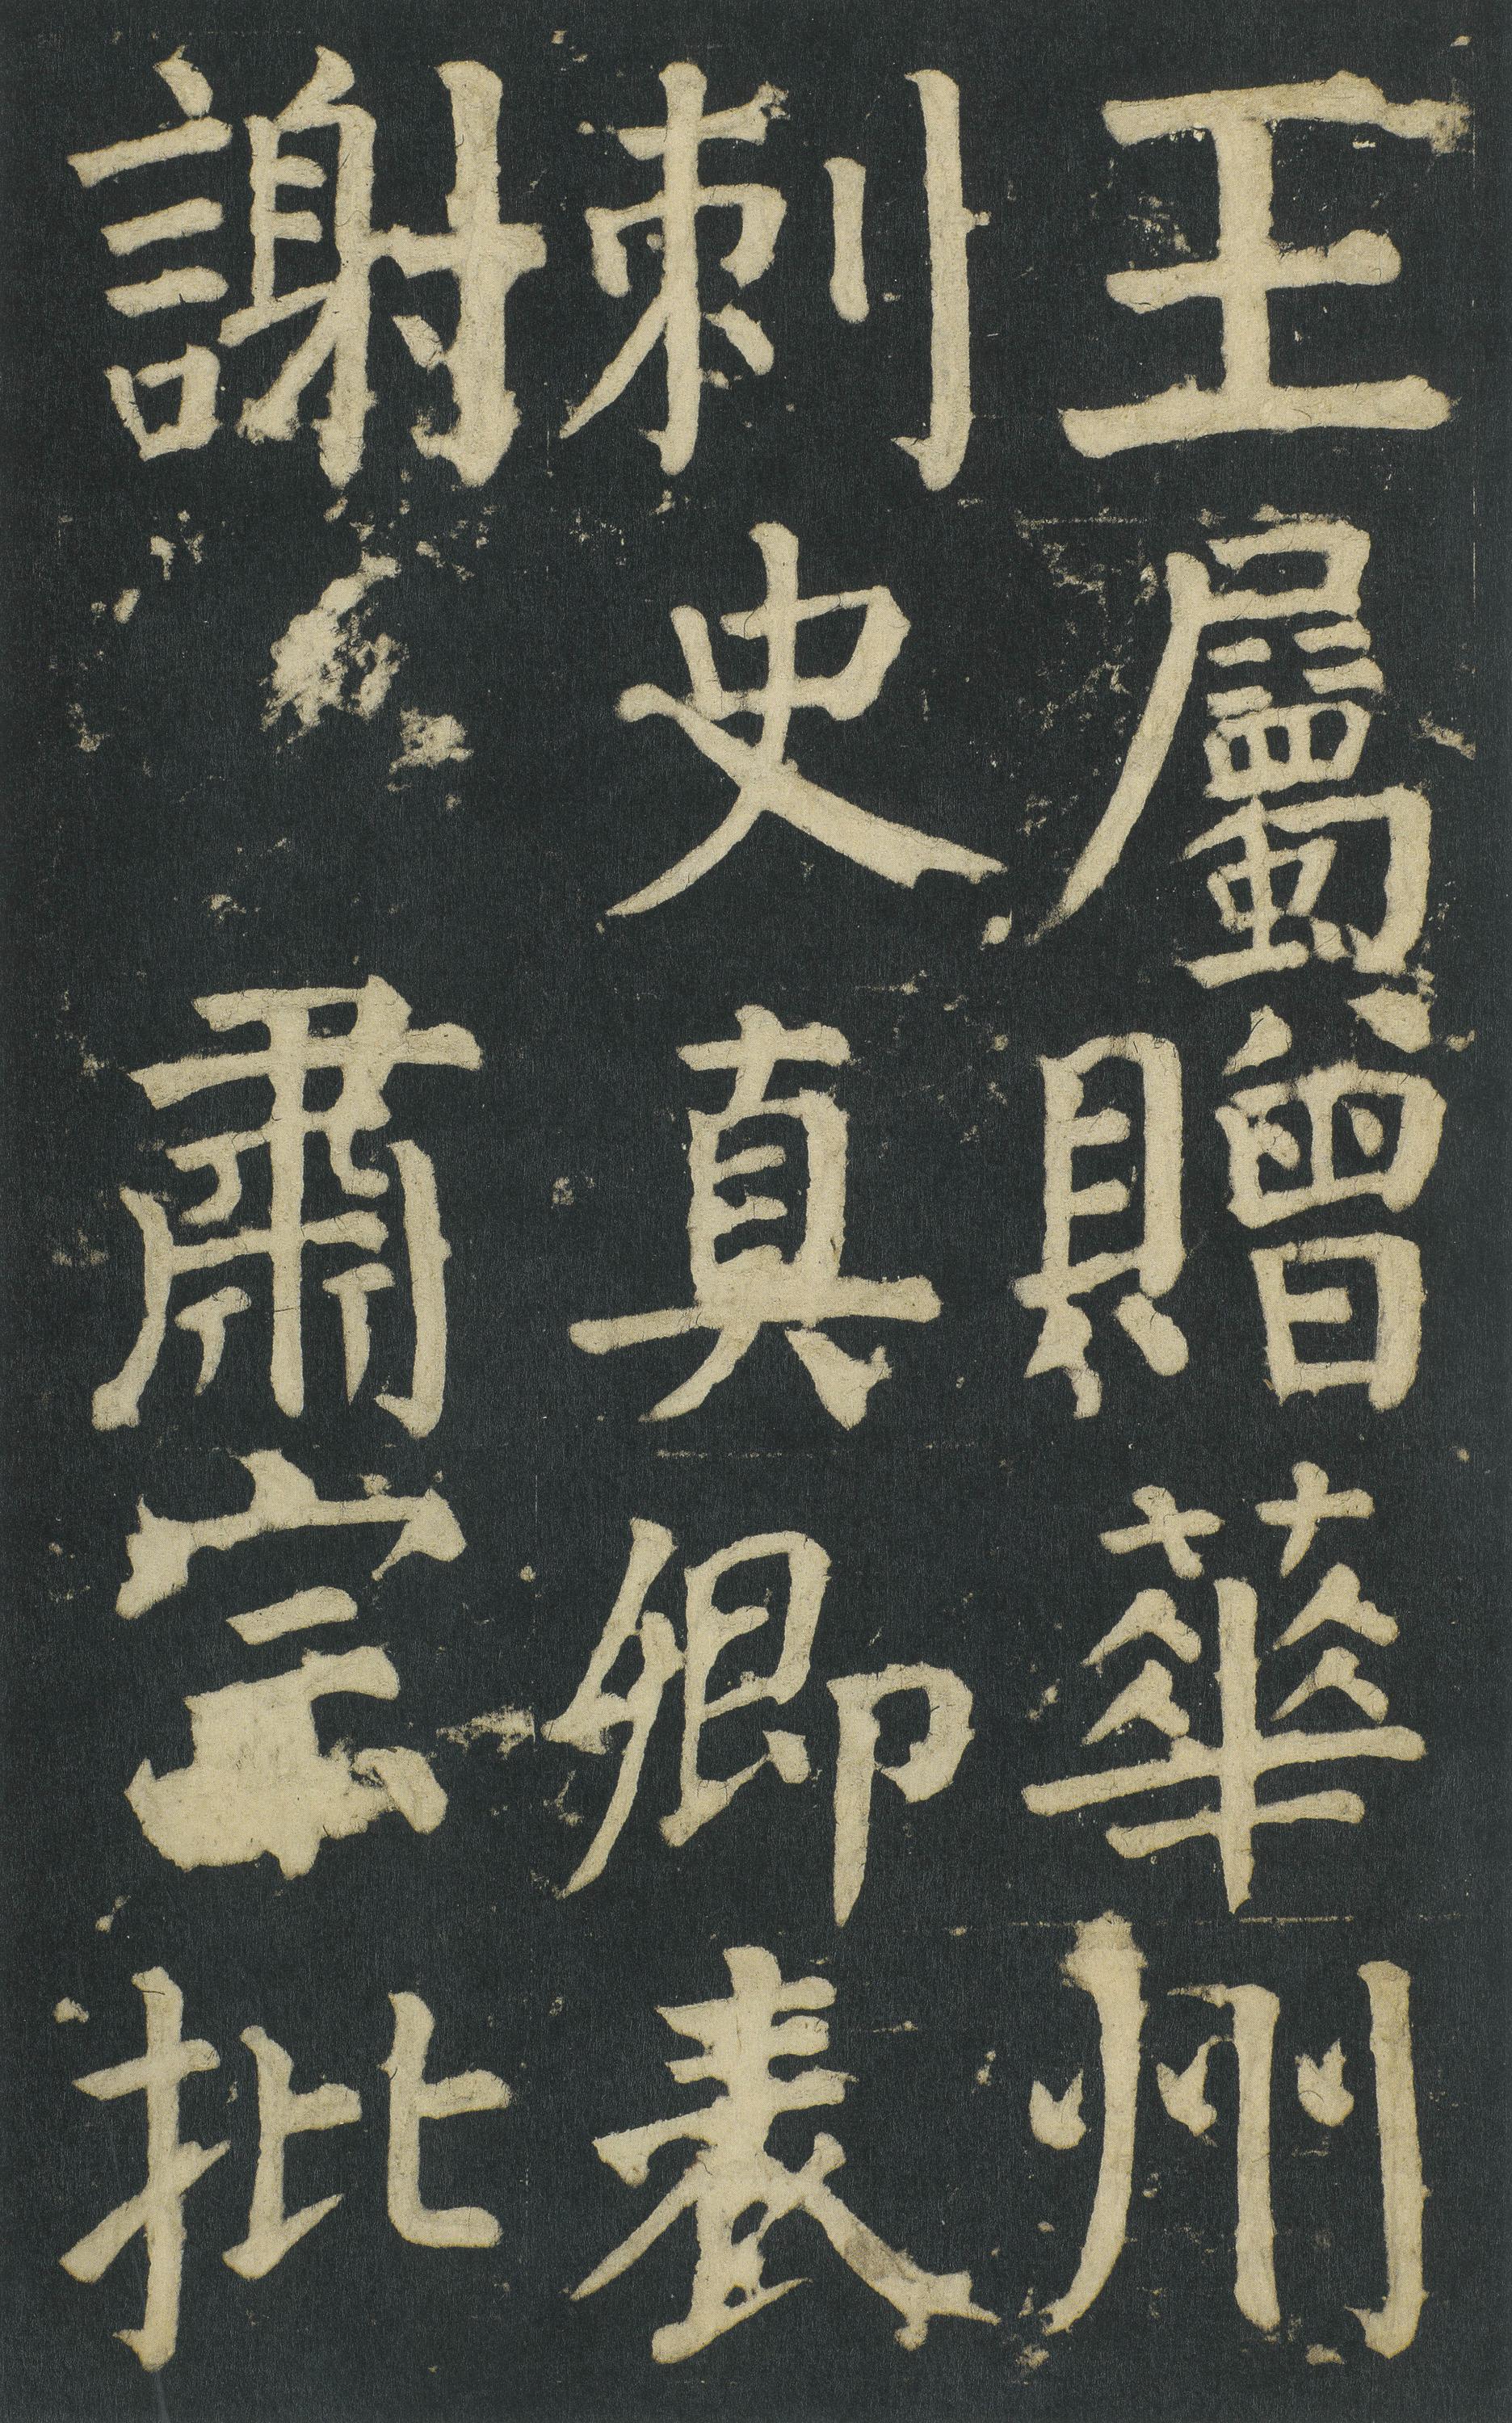 王屬贈華州
刺史真卿表
謝肅宗批